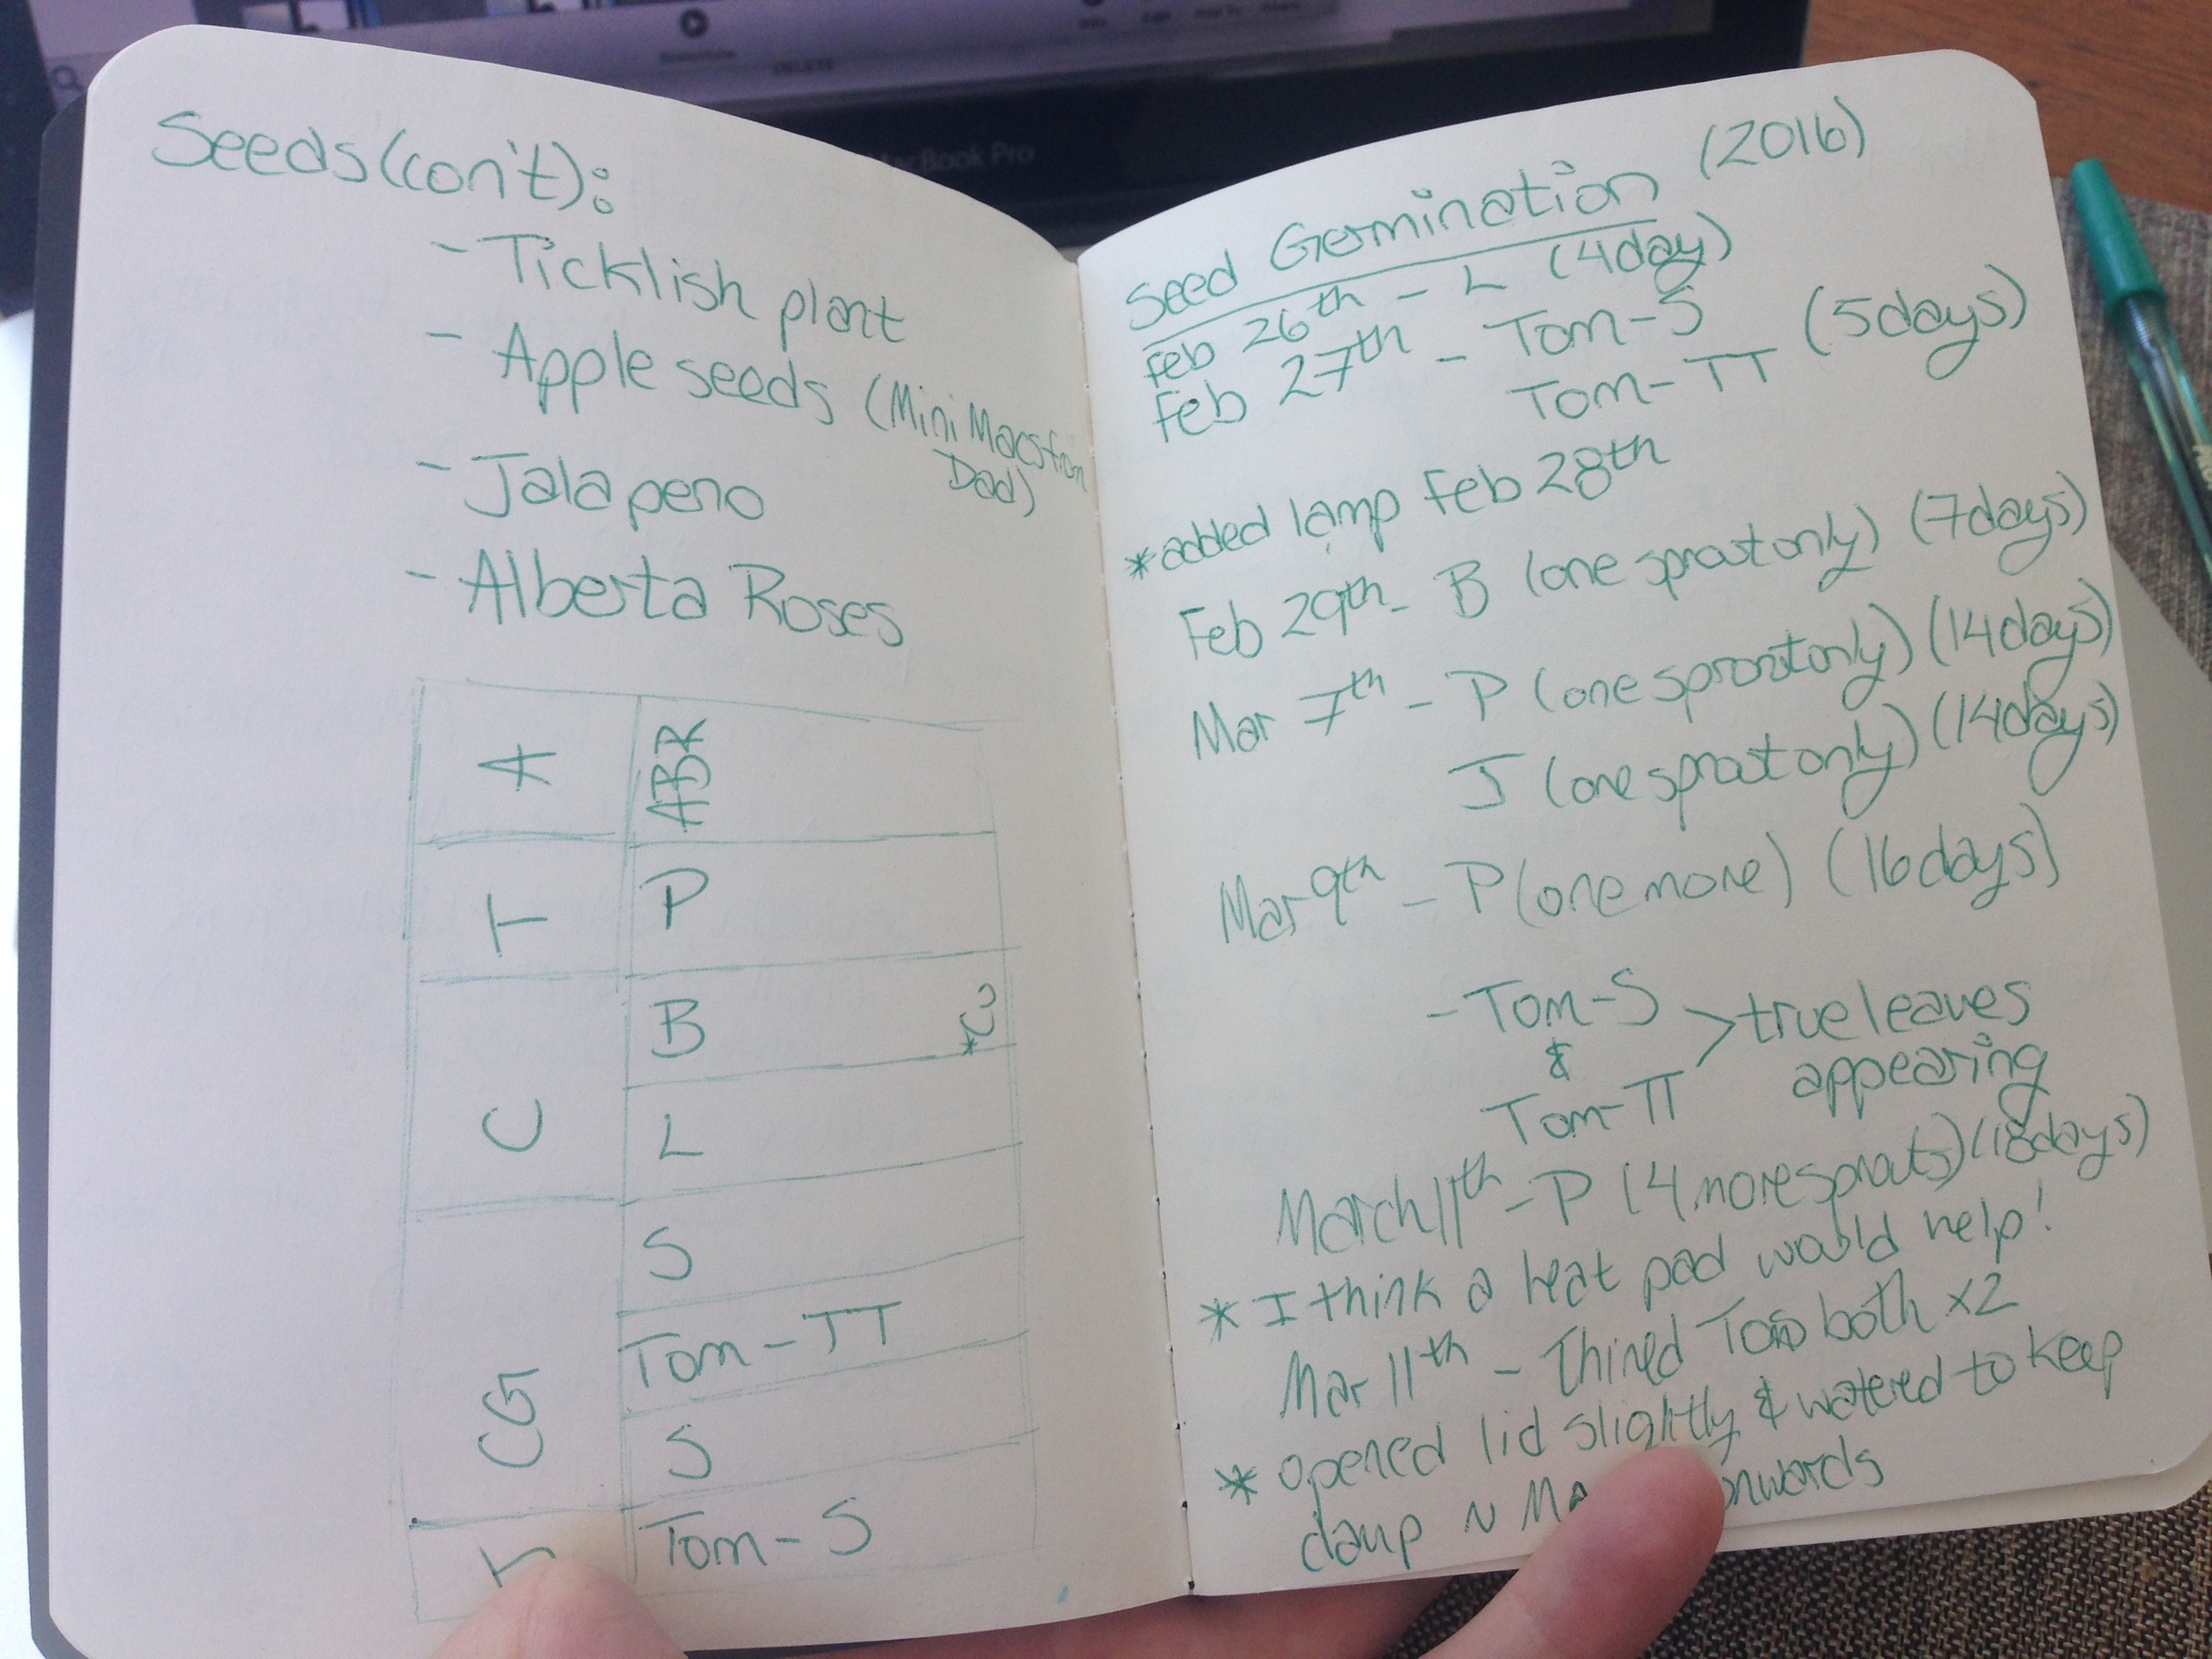 MacBook Pro
Seeds (con't):
- Ticklish plant
- Apple seeds (Mini Macs from
Dad)
- Jalapeno
- Alberta Roses
A
ABR
T
P
C
B
L
CG
S
Tom-TT
S
Tom-S
Seed Germination (2016)
Feb 26th - L (4day)
Feb 27th - Tom-S
Tom-TT (5days)
*added lamp Feb 28th
Feb 29th - B (one sprout only) (7days)
Mar 7th - P (one sprout only) (14days)
J (one sprout only) (14days)
Mar 9th - P (one more) (16days)
- Tom-S
&
Tom-TT > true leaves
appearing
March 11th - P (4 more sprouts) (18days)
* I think a heat pad would help!
Mar 11th - Thined Toms both x2
* opened lid slightly & watered to keep
damp ~ Ma onwards